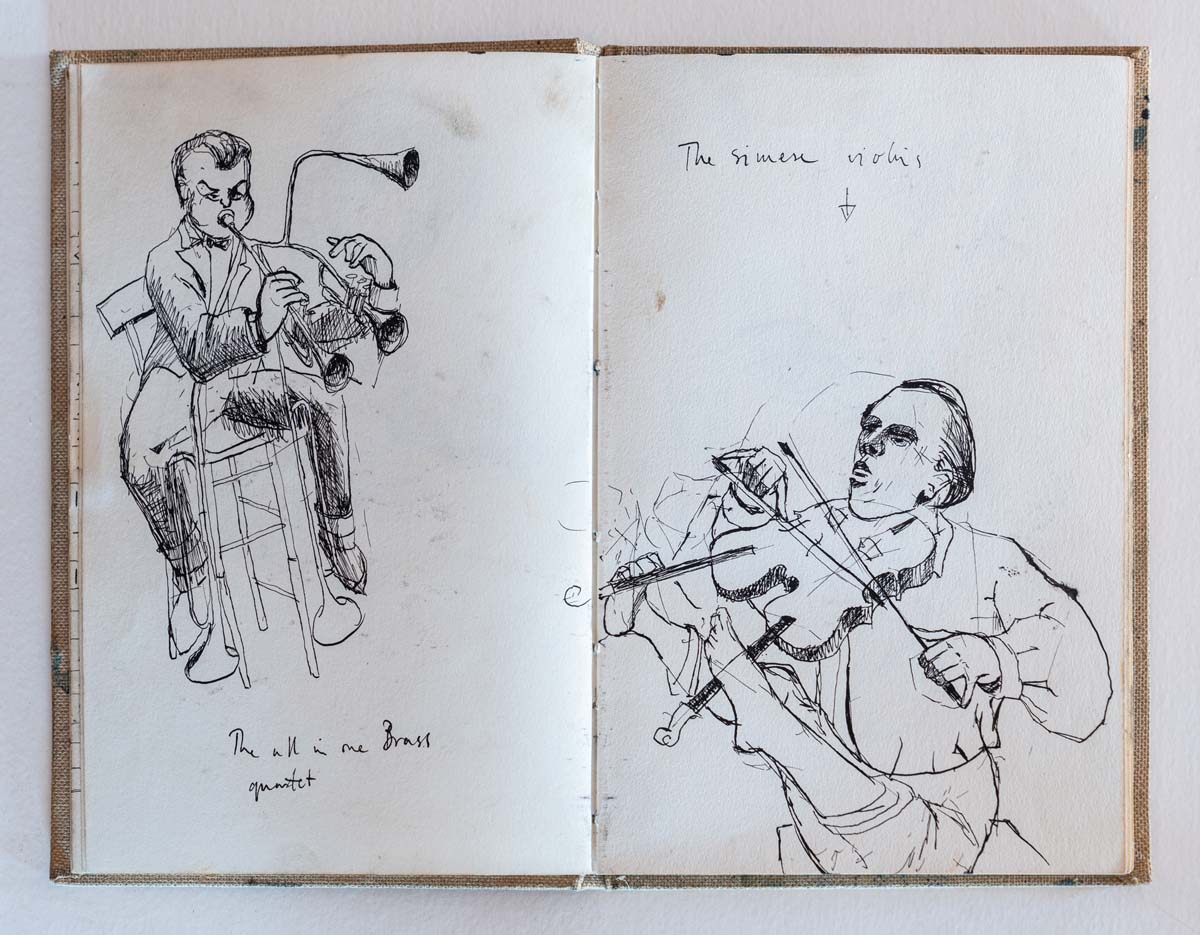 The all in one Brass
quartet
The simese violins